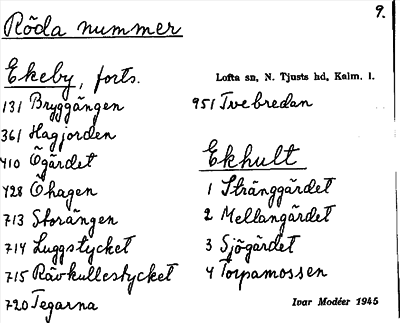 9.
Röda nummer
Ekeby, forts.
Lofta sn, N. Tjusts hd, Kalm. l.
131 Bryggängen
361 Hagjorden
410 Ögärdet
428 Öhagen
713 Storängen
714 Luggstycket
715 Rävkullestycket
720 Tegarna
951 Tvebredan
Ekhult
1 Stränggärdet
2 Mellangärdet
3 Sjögärdet
4 Torpamossen
Ivar Modéer 1945